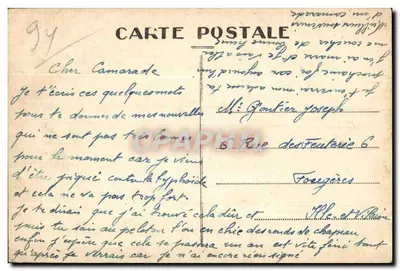 94
CARTE POSTALE
Cher Camarade
Je t'écris ces quelques mots
pour te donner de mes nouvelles
qui ne sont pas très bonnes
pour le moment car je viens
d'être piqué contre la typhoïde
et cela ne va pas trop fort
je te dirais que j'ai trouvé cela dur et
puis tu sais au peloton l'on en chie des ronds de chapeau
enfin j'espère que cela se passera un an est vite fini tant
qu'après je verrais car je n'ai encore rien signé
Mr Gontier Joseph
6 Rue des Feuteries 6
Fougères
Ille et Vilaine
d'un camarade